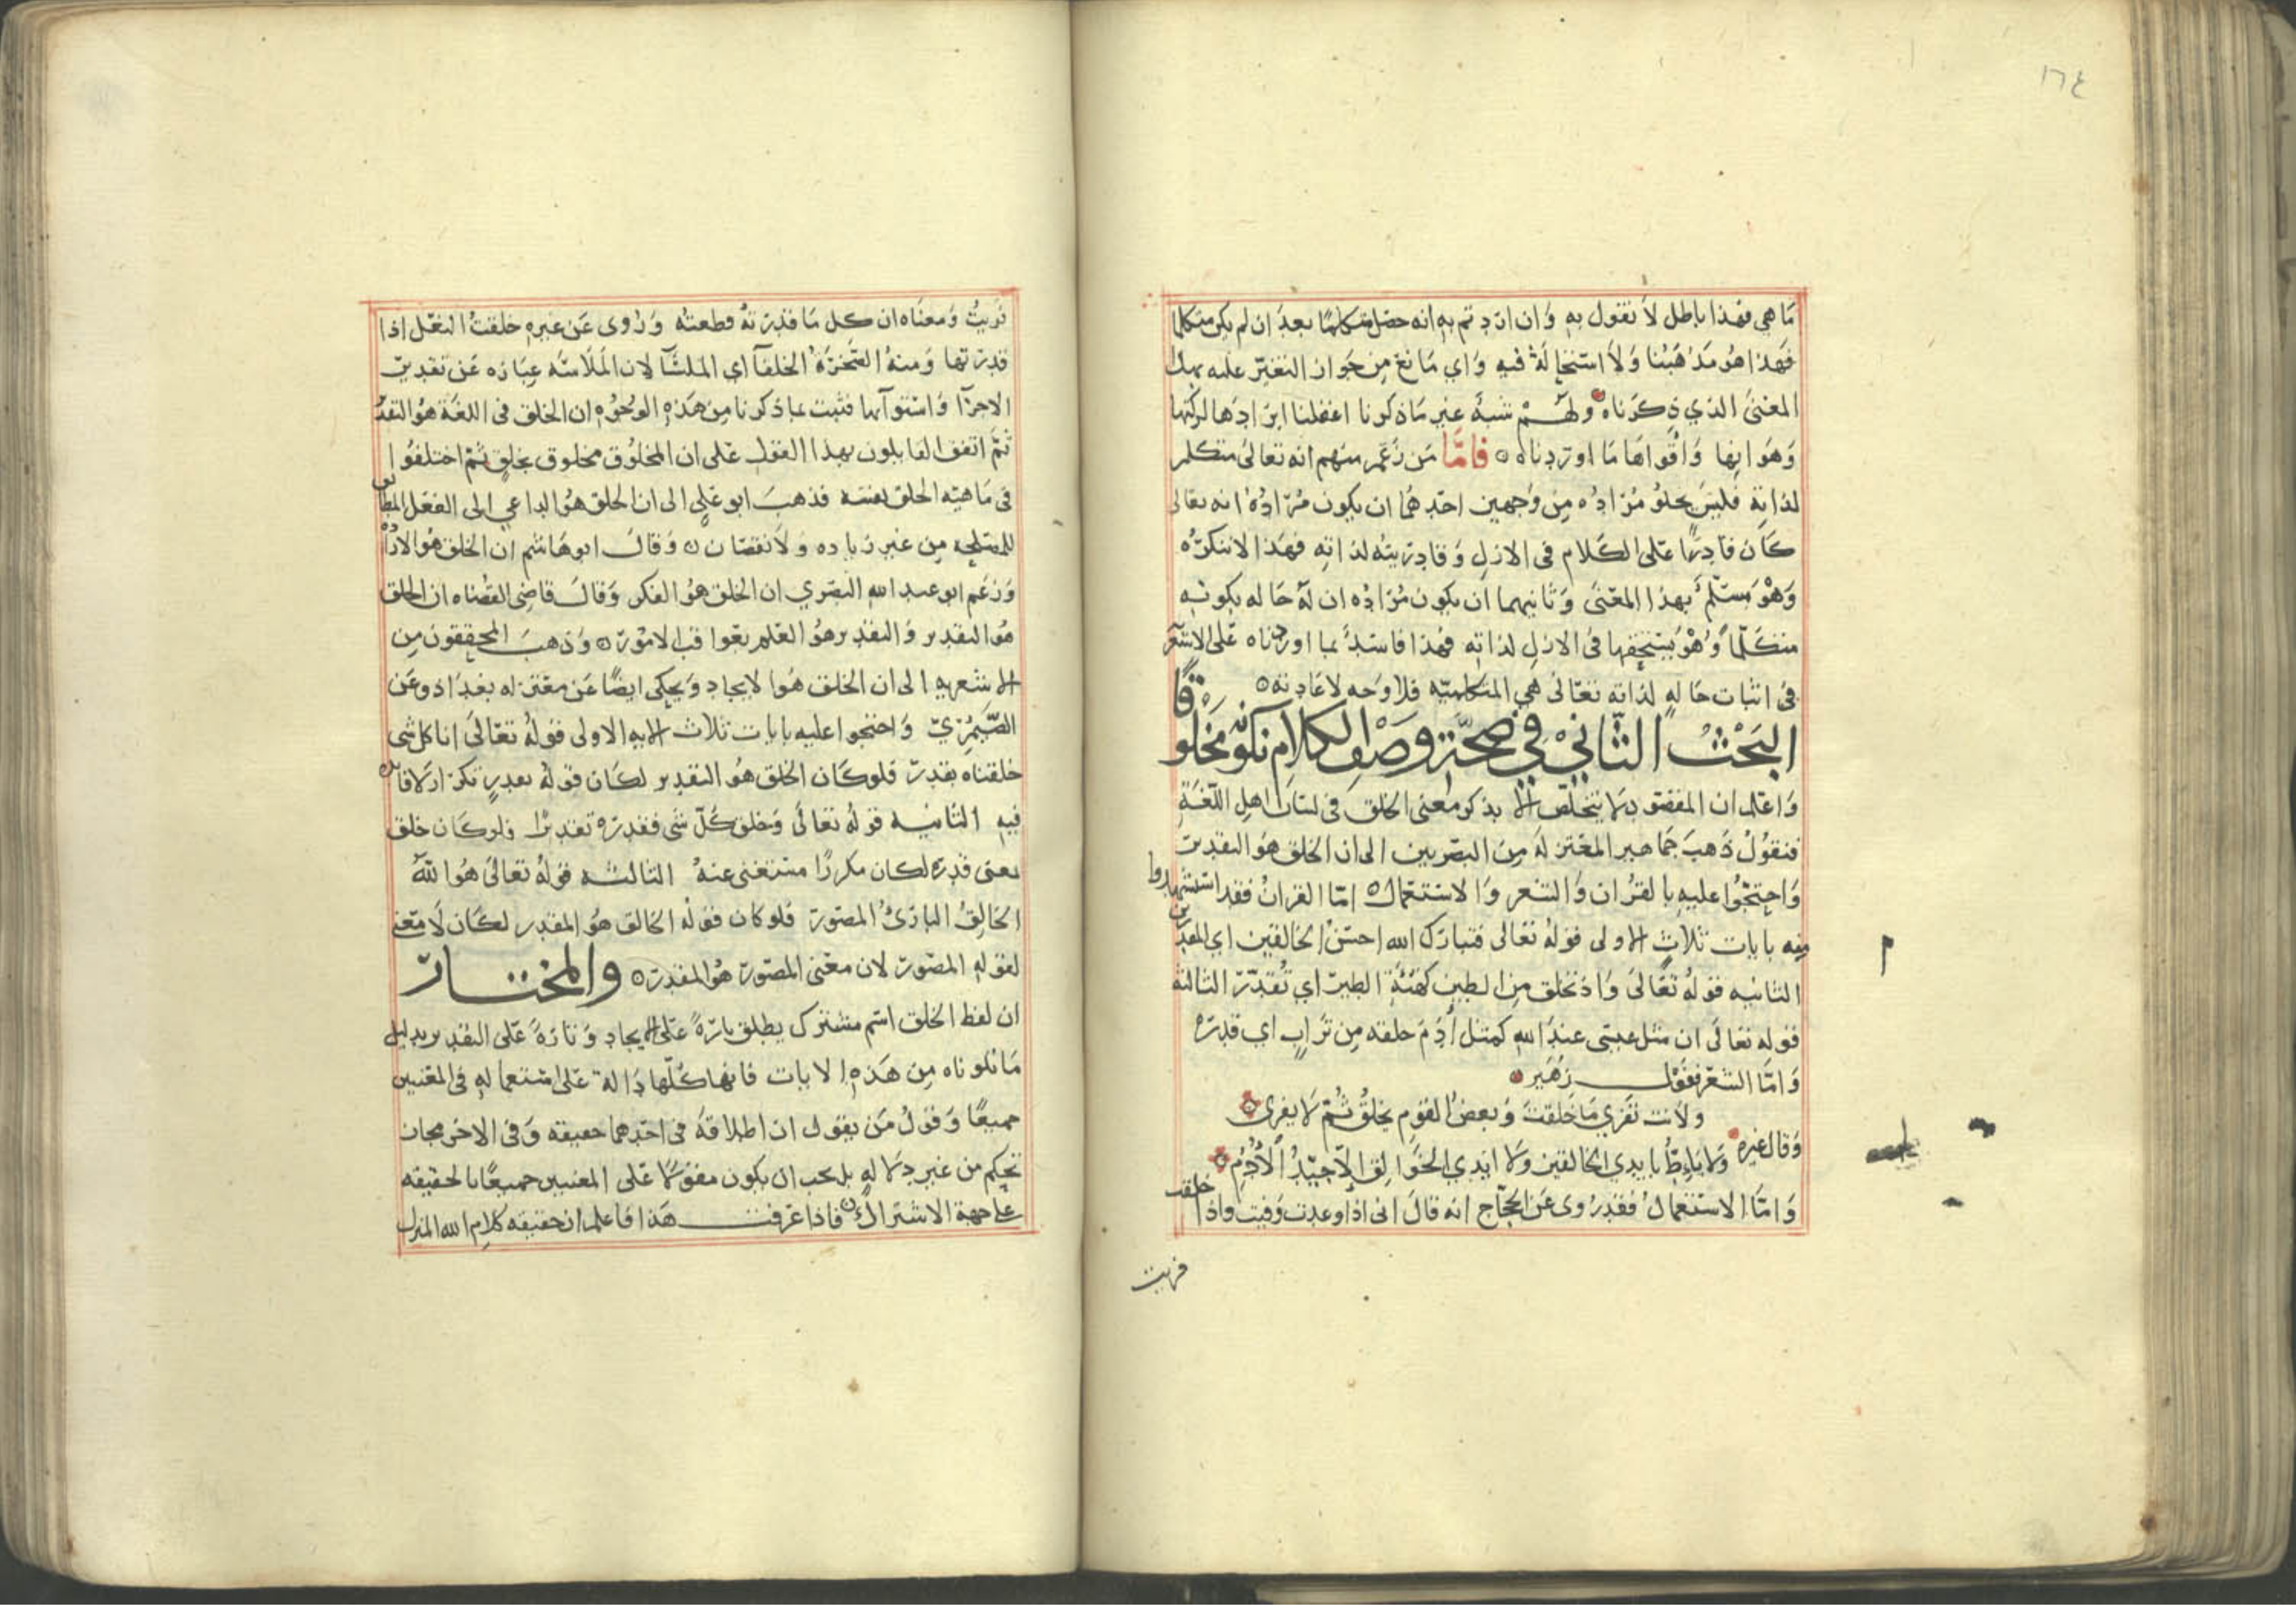 ١٦٤
ما هي فهذا باطل لا نقول به وان اردتم به انه حصل متكلما بعد ان لم يكن متكلما
فهذا هو مذهبنا ولا استحالة فيه واي مانع من جواز التغير عليه بهذا
المعنى الذي ذكرناه ولهم شبه غير ما ذكرنا اغفلنا ايرادها لركتها
وهوانها واقواها ما اوردناه فاما من زعم منهم انه تعالى متكلم
لذاته فليس يخلو مراده من وجهين احدهما ان يكون مراده انه تعالى
كان قادرا على الكلام في الازل وقادريته لذاته فهذا لا ننكره
وهو مسلم بهذا المعنى وثانيهما ان يكون مراده ان له حاله بكونه
متكلما وهو يستحقها في الازل لذاته فهذا فاسد بما اوردناه على الاشعر
في اثبات حاله لذاته تعالى هي المتكلميه فلا وجه لاعادته
البحث الثاني في صحة وصف الكلام بكونه مخلوقا
واعلم ان المقصود لا يتخلص الا بذكر معنى الخلق في لسان اهل اللغة
فنقول ذهب جماهير المعتزله من البصريين الى ان الخلق هو التقدير
واحتجوا عليه بالقران والشعر والاستعمال اما القران فقد استشهدوا
منه بايات ثلاث الاولى قوله تعالى فتبارك الله احسن الخالقين اي المقدرين
الثانيه قوله تعالى واذ تخلق من الطين كهيئة الطير اي تقدر الثالثه
قوله تعالى ان مثل عيسى عند الله كمثل آدم خلقه من تراب اي قدره
واما الشعر فقول زهير
ولانت تفري ما خلقت وبعض القوم يخلق ثم لا يفري
وقال غيره ولا يئط بايدي الخالقين ولا ايدي الخوالق الا جيد الادم
واما الاستعمال فقد روى عن الحجاج انه قال اني اذا وعدت وفيت واذا خلقت
فريت
فريت ومعناه ان كل ما قدرته قطعته وروى عن غيره خلقت النعل اذا
قدرتها ومنه الصخرة الخلقآ اي الملسآ لان الملاسه عباره عن تقدير
الاجزآ واستوآئها فثبت بما ذكرنا من هذه الوجوه ان الخلق في اللغة هو التقدير
ثم اتفق القايلون بهذا القول على ان المخلوق مخلوق بخلق ثم اختلفوا
في ماهيه الخلق نفسه فذهب ابو علي الى ان الخلق هو الداعي الى الفعل المطابق
للمصلحه من غير زياده ولا نقصان وقال ابو هاشم ان الخلق هو الاراده
وزعم ابو عبد الله البصري ان الخلق هو الفكر وقال قاضي القضاه ان الخلق
هو التقدير والتقدير هو العلم بعواقب الامور وذهب المحققون من
الاشعريه الى ان الخلق هو الايجاد ويحكى ايضا عن معتزله بغداد وعن
الصيمري واحتجوا عليه بايات ثلاث الايه الاولى قوله تعالى انا كل شي
خلقناه بقدر فلو كان الخلق هو التقدير لكان قوله بقدر تكرارا لا فايده
فيه الثانيه قوله تعالى وخلق كل شي فقدره تقديرا فلو كان خلق
بمعنى قدره لكان مكررا مستغنى عنه الثالثه قوله تعالى هو الله
الخالق البارئ المصور فلو كان قوله الخالق هو المقدر لكان لا معنى
لقوله المصور لان معنى المصور هو المقدر والمختار
ان لفظ الخلق اسم مشترك يطلق تارة على الايجاد وتارة على التقدير بدليل
ما تلوناه من هذه الايات فانها كلها دالة على استعماله في المعنيين
جميعا وقول من يقول ان اطلاقه في احدهما حقيقه وفي الاخر مجاز
تحكم من غير دلاله بل يجب ان يكون مقولا على المعنيين جميعا بالحقيقه
على جهة الاشتراك فاذا عرفت هذا فاعلم ان حقيقه كلام الله المنزل